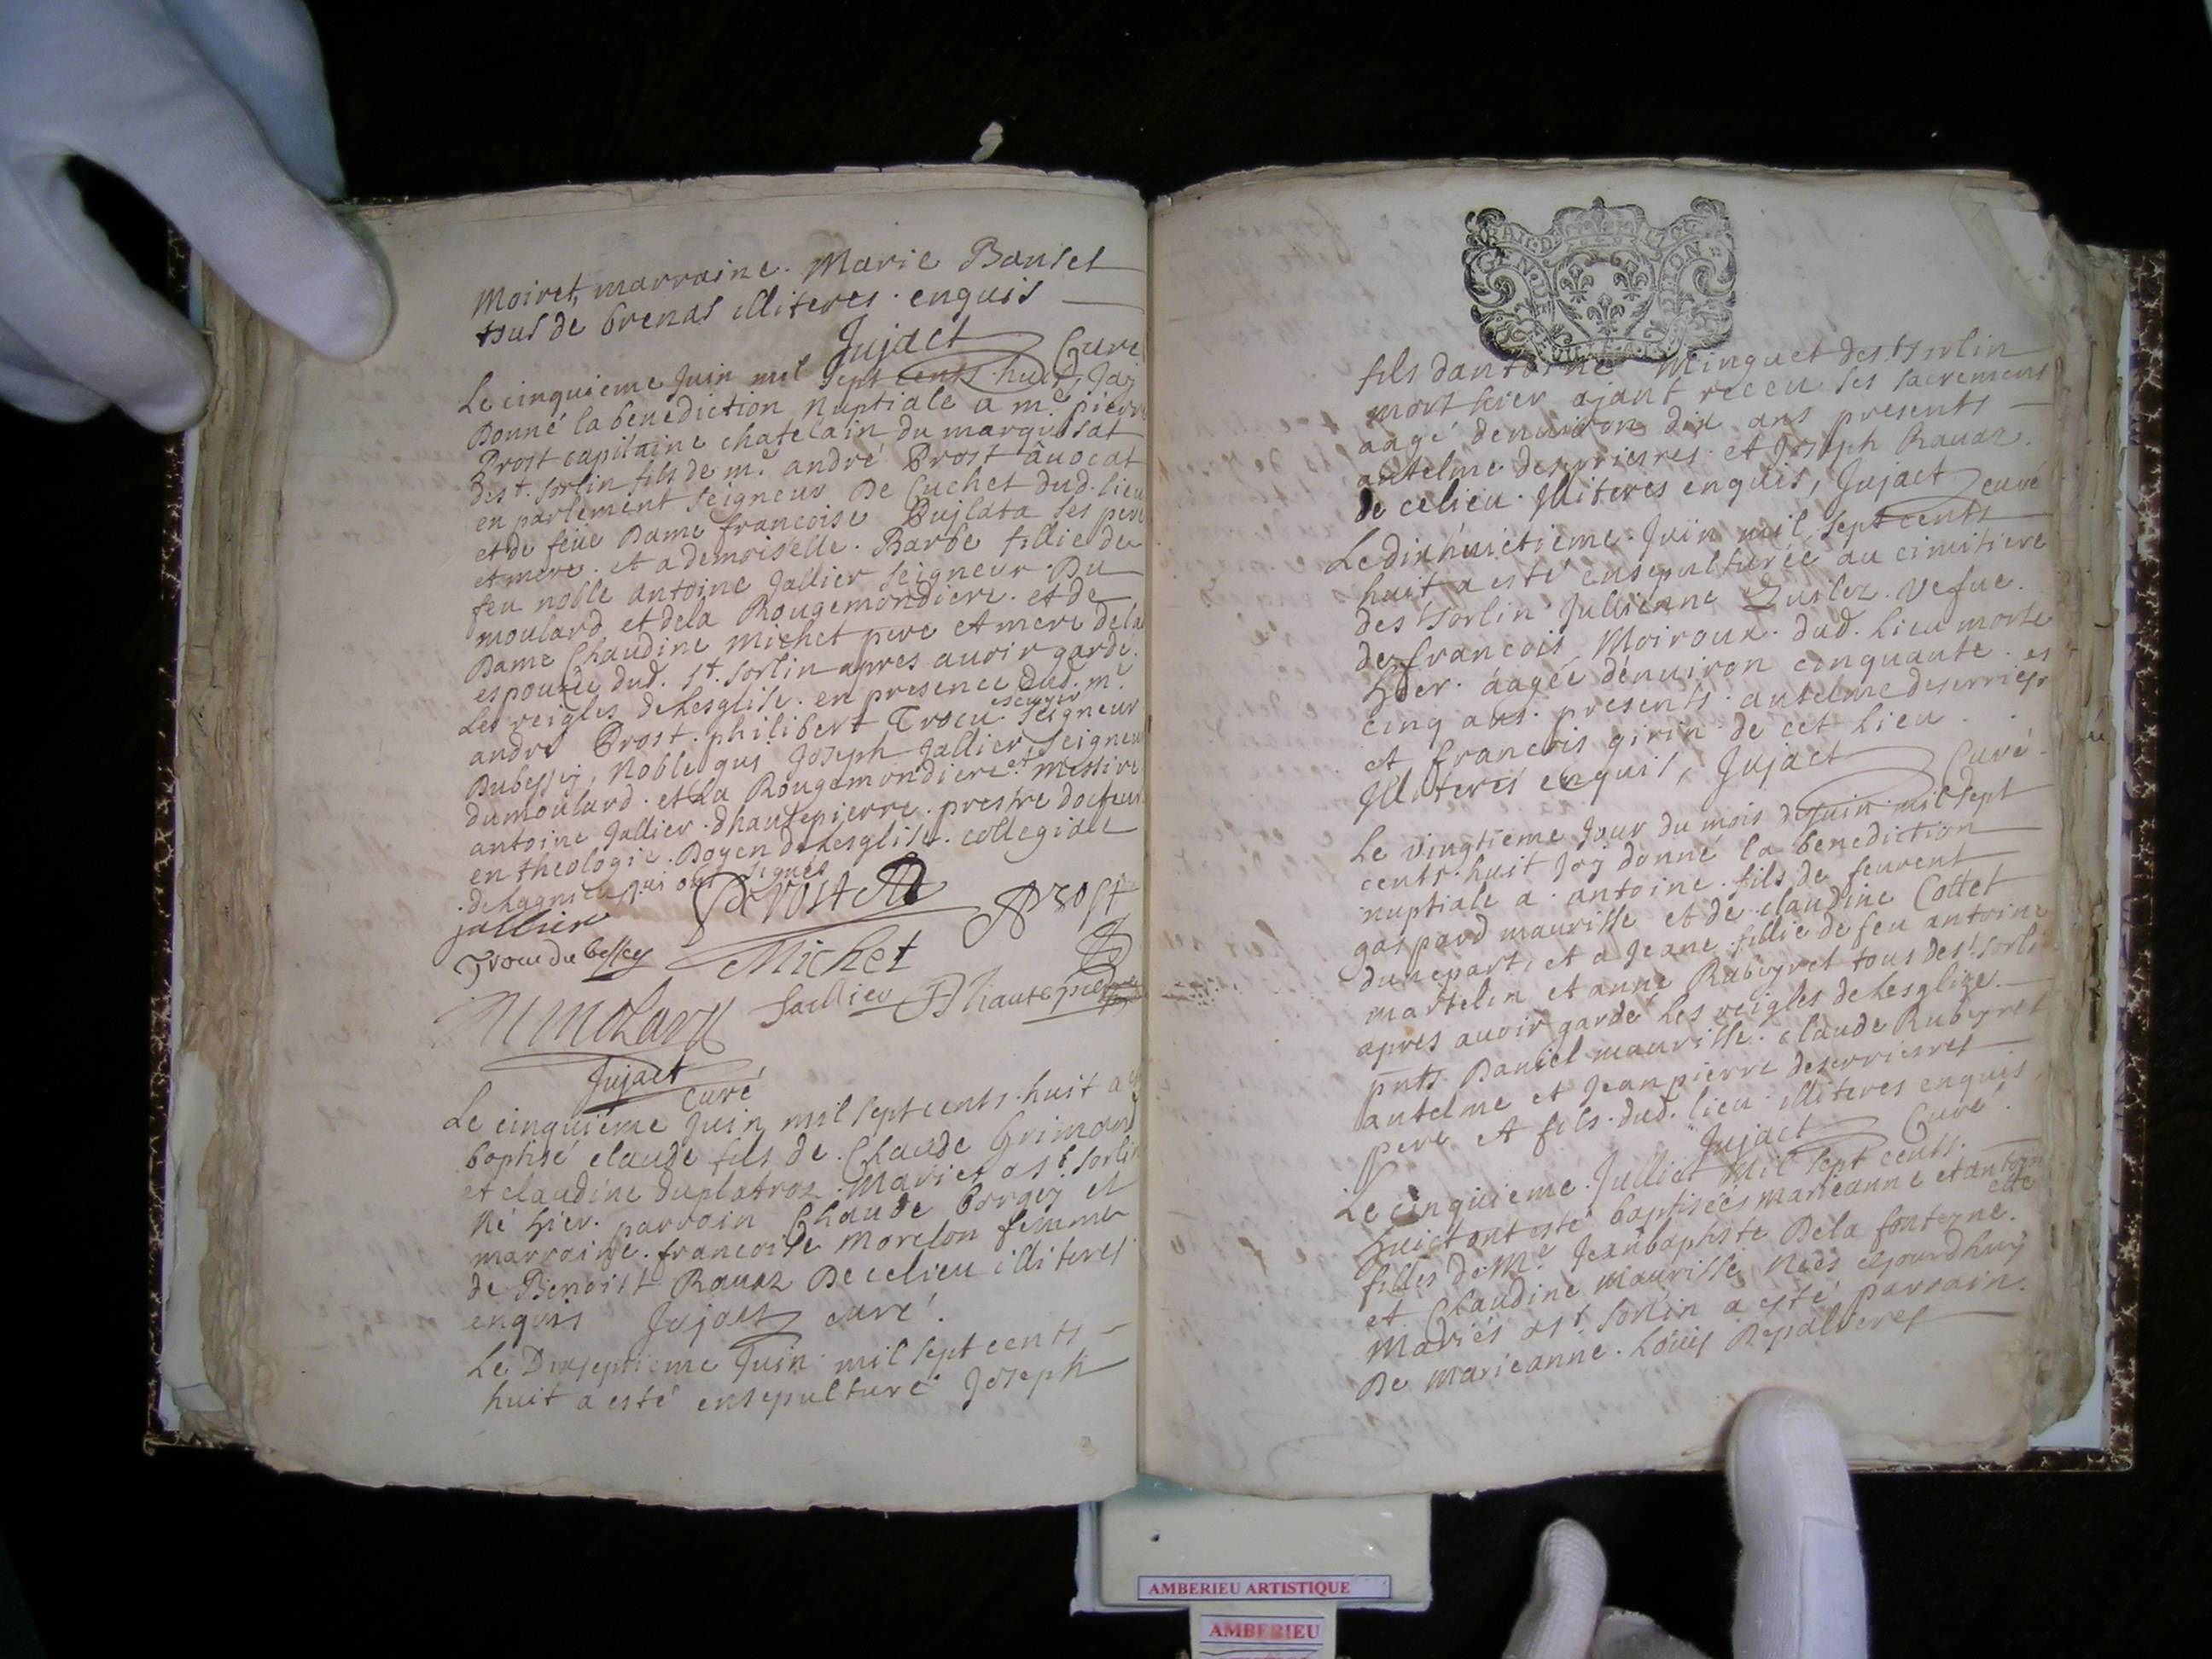 Moiret, marraine. Marie Banset
tous de brenas illiteres. enquis
Jujact Curé
Le cinquieme Juin mil sept cents huit, Jay
Donné la benediction Nuptiale a me. pierre
Prost capitaine chatelain du marquisat
de st. sorlin fils de me. andré Prost avocat
en parlement seigneur De Cuchet dud. lieu
et de feüe Dame francoise Dujlata ses pere
et mere. et a demoiselle. Barbe fillie de
feu noble antoine Jallier seigneur. Du
moulard et dela Rougemondiere. et de
Dame Claudine Michet pere et mere dela
espouze dud. st. sorlin apres auoir gardé.
Les reigles de Lesglise. en presence dud. me.
escuyer
andré Prost. philibert Trocu. seigneur
Dubessey, Noble gui Joseph Jallier, seigneur
dumoulard. et La Rougemondiere et. Messire
antoine Jallier. dhautepierre. prestre docteur
en theologie. Doyen de Lesglise. collegialle
de Lagnieu qui ont signés
jallier Prost Prost
Trocu du bessey Michet
Dumolard Jallier Dhautepierre
Jujact
curé
Le cinquieme Juin mil sept cents. huit a esté
baptisé claude fils de. Claude Grimand
et claudine duplatroz. Mariés a st. sorlin
Né hier. parrain Claude borgey et
marraine. francoise Morelon femme
de Benoist Rauaz De celieu illiteres
enquis Jujact curé.
Le Dixseptieme Juin. mil sept cents
huit a esté ensepulturé Joseph
fils dantoine Minguet de st sorlin
mort hier ajant receu ses sacremens
aagé denuiron dix ans presents
antelme desprieres. et Joseph Rauaz.
de celieu. Jlliteres enquis, Jujact curé
Le dixhuictieme. Juin mil sept cents
huit a esté ensepulturée au cimitiere
de st sorlin Jullienne Guilez. Vefue.
de francois Moiroux. dud. lieu morte
hier. aagée dénuiron cinquante. et
cinq ans. presents. antelme deserrieres
et francois girin de cet lieu.
Jlliteres enquis, Jujact Curé.
Le vingtieme Jour du mois de Juin mil sept
cents. huit Jay donné la benediction
nuptiale a. antoine. fils de feurent
gaspard maurisse et de claudine Cottet
dune part, et a Jeane fillie de feu antoine
martelin et anne Rubeyret tous de st sorlin
apres auoir gardé Les reigles de Lesglize.
pnts. Daniel maurisse. claude Rubeyret
antelme et Jean pierre deserrieres
pere et fils. dud. lieu. illiteres enquis
Jujact Curé.
Le cinquieme. Julliet Mil sept cents.
huict ont esté baptisées marieanne et antoin
ette
filles de Me. Jeanbaptiste Dela fonteyne.
et Claudine Maurisse Nées ejourdhuy
Mariés a st. sorlin a esté parrain.
De marieanne. Loüis Depalieres
AMBERIEU ARTISTIQUE
AMBERIEU